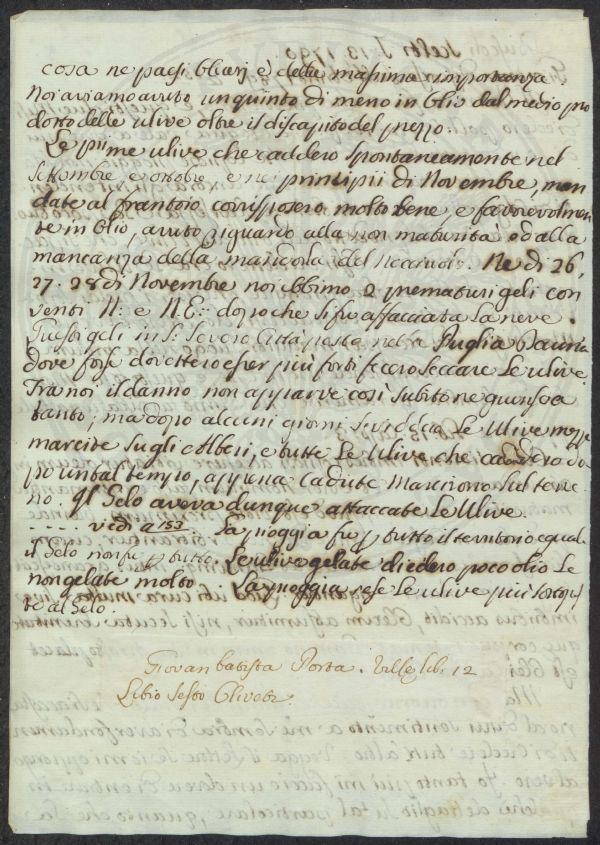 cosa ne paesi Oliarj è della massima importanza.
Noi aviamo avuto un quinto di meno in Olio dal medio pro
dotto delle ulive oltre il discapito del prezzo.
Le prime ulive che caddero spontaneamente nel
Settembre e ottobre e ne principii di Novembre, man
date al frantoio corrisposero molto bene, e favorevolmen
te in Olio, avuto riguardo alla non maturità ed alla
mancanza della mandorla del Ne dì 26,
27. 28 di Novembre noi ebbimo 2 prematuri geli con
venti N: e N.E: dopo che si fu affacciata la neve.
Questi geli in S: Severo Città posta nella Puglia Daunia
dove forse dovettero esser più forti fecero seccare le ulive
Tra noi il danno non apparve così subito ne quanto a
tanto; ma dopo alcuni giorni si viddero le Ulive mezze
marcite sugli Alberi, e tutte le Ulive che caddero do
po un tal tempo, appena cadute marcirono sul terre
no. Il Gelo aveva dunque attaccate le Ulive.
---- vedi a 153 La pioggia fu p tutto il territorio egual.
il Gelo non fu p tutto. Le ulive gelate diedero poco olio le
non gelate molto La pioggia rese le ulive più
te al Gelo.
Giovan batista Porta. Villae lib. 12
Libro sesto Olivetū